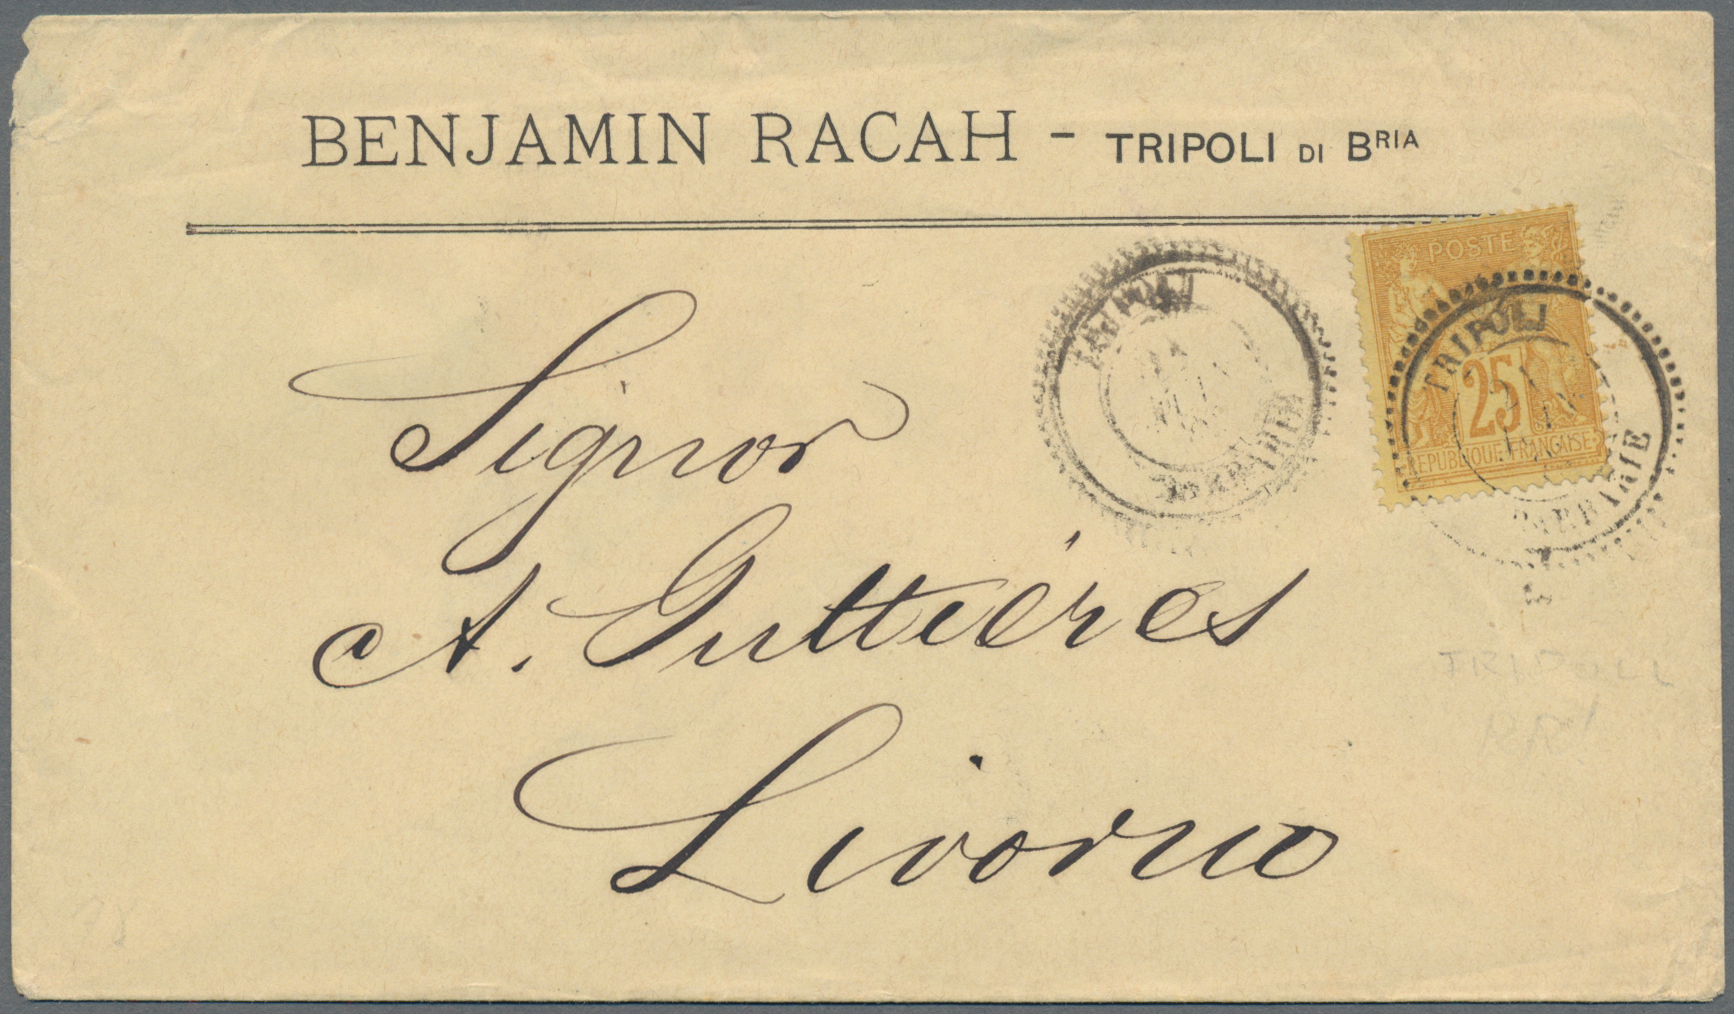 BENJAMIN RACAH - TRIPOLI DI BRIA
POSTE
25
REPUBLIQUE FRANÇAISE
TRIPOLI
BARBARIE
TRIPOLI
BARBARIE
Signor
A. Guttières
Livorno
TRIPOLI